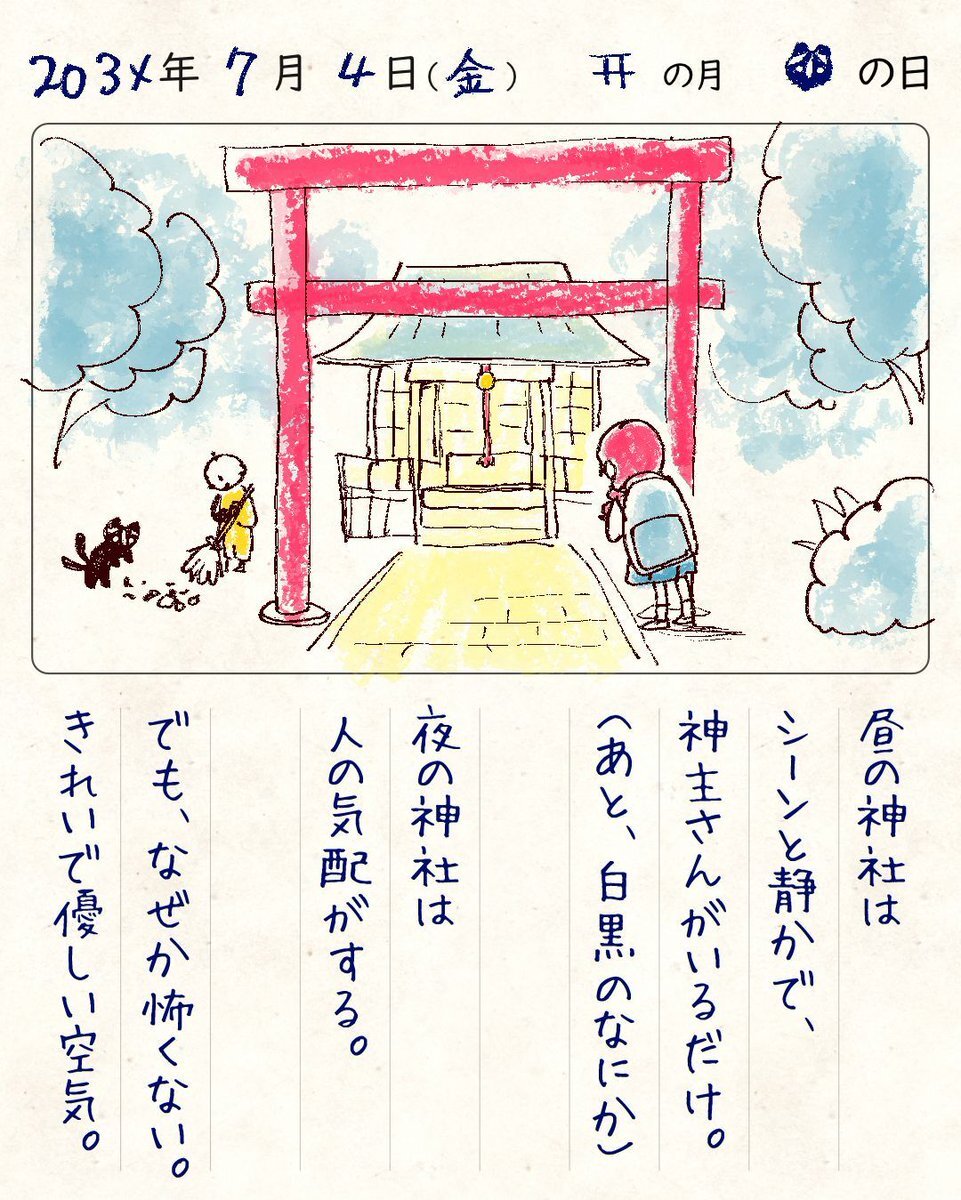 203X年 7月 4日(金) 开の月 の日
昼の神社は
シーンと静かで、
神主さんがいるだけ。
(あと、白黒のなにか)
夜の神社は
人の気配がする。
でも、なぜか怖くない。
きれいで優しい空気。